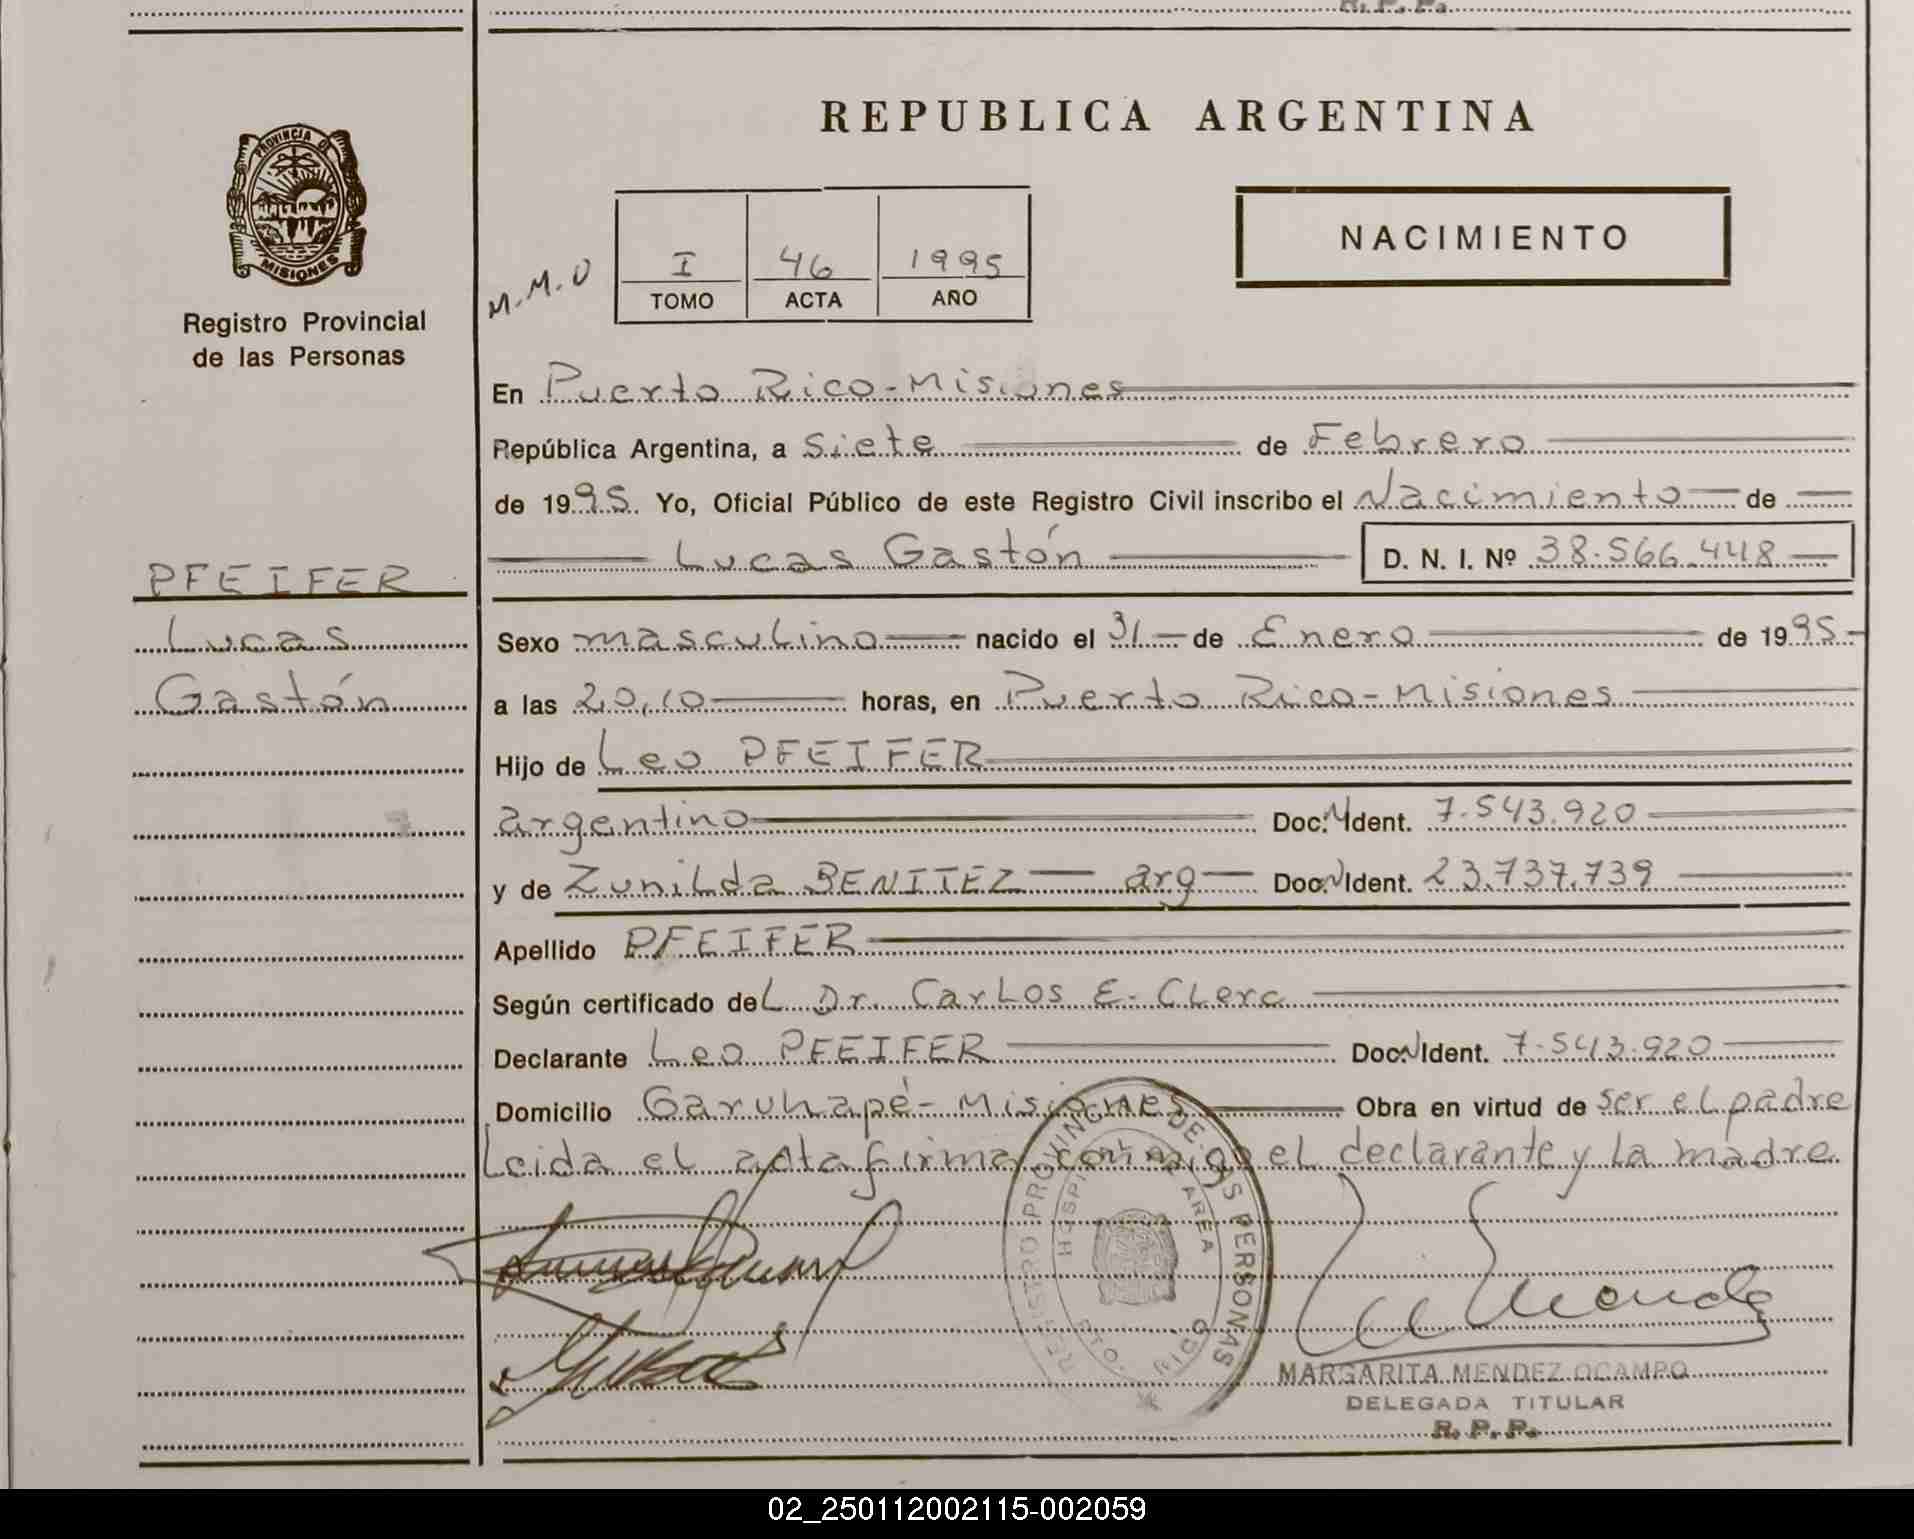 R. P. P.
REPUBLICA ARGENTINA
PROVINCIA DE
MISIONES
Registro Provincial
de las Personas
NACIMIENTO
M.M.O
I 46 1995
TOMO ACTA AÑO
En Puerto Rico - Misiones
República Argentina, a Siete de Febrero
de 1995. Yo, Oficial Público de este Registro Civil inscribo el Nacimiento de
Lucas Gastón D. N. I. Nº 38.566.448
PFEIFER
Lucas
Gastón
Sexo masculino nacido el 31 de Enero de 1995
a las 20,10 horas, en Puerto Rico - Misiones
Hijo de Leo PFEIFER
argentino Doc. N Ident. 7.543.920
y de Zunilda BENITEZ arg Doc. N Ident. 23.737.739
Apellido PFEIFER
Según certificado del Dr. Carlos E. Clerc
Declarante Leo PFEIFER Doc. N Ident. 7.543.920
Domicilio Garuhapé - Misiones Obra en virtud de ser el padre
Leida el acta firma conmigo el declarante y la madre.
REGISTRO PROVINCIAL DE LAS PERSONAS
HOSPITAL AREA
PTO. RICO
MARGARITA MENDEZ OCAMPO
DELEGADA TITULAR
R. P. P.
02_250112002115-002059